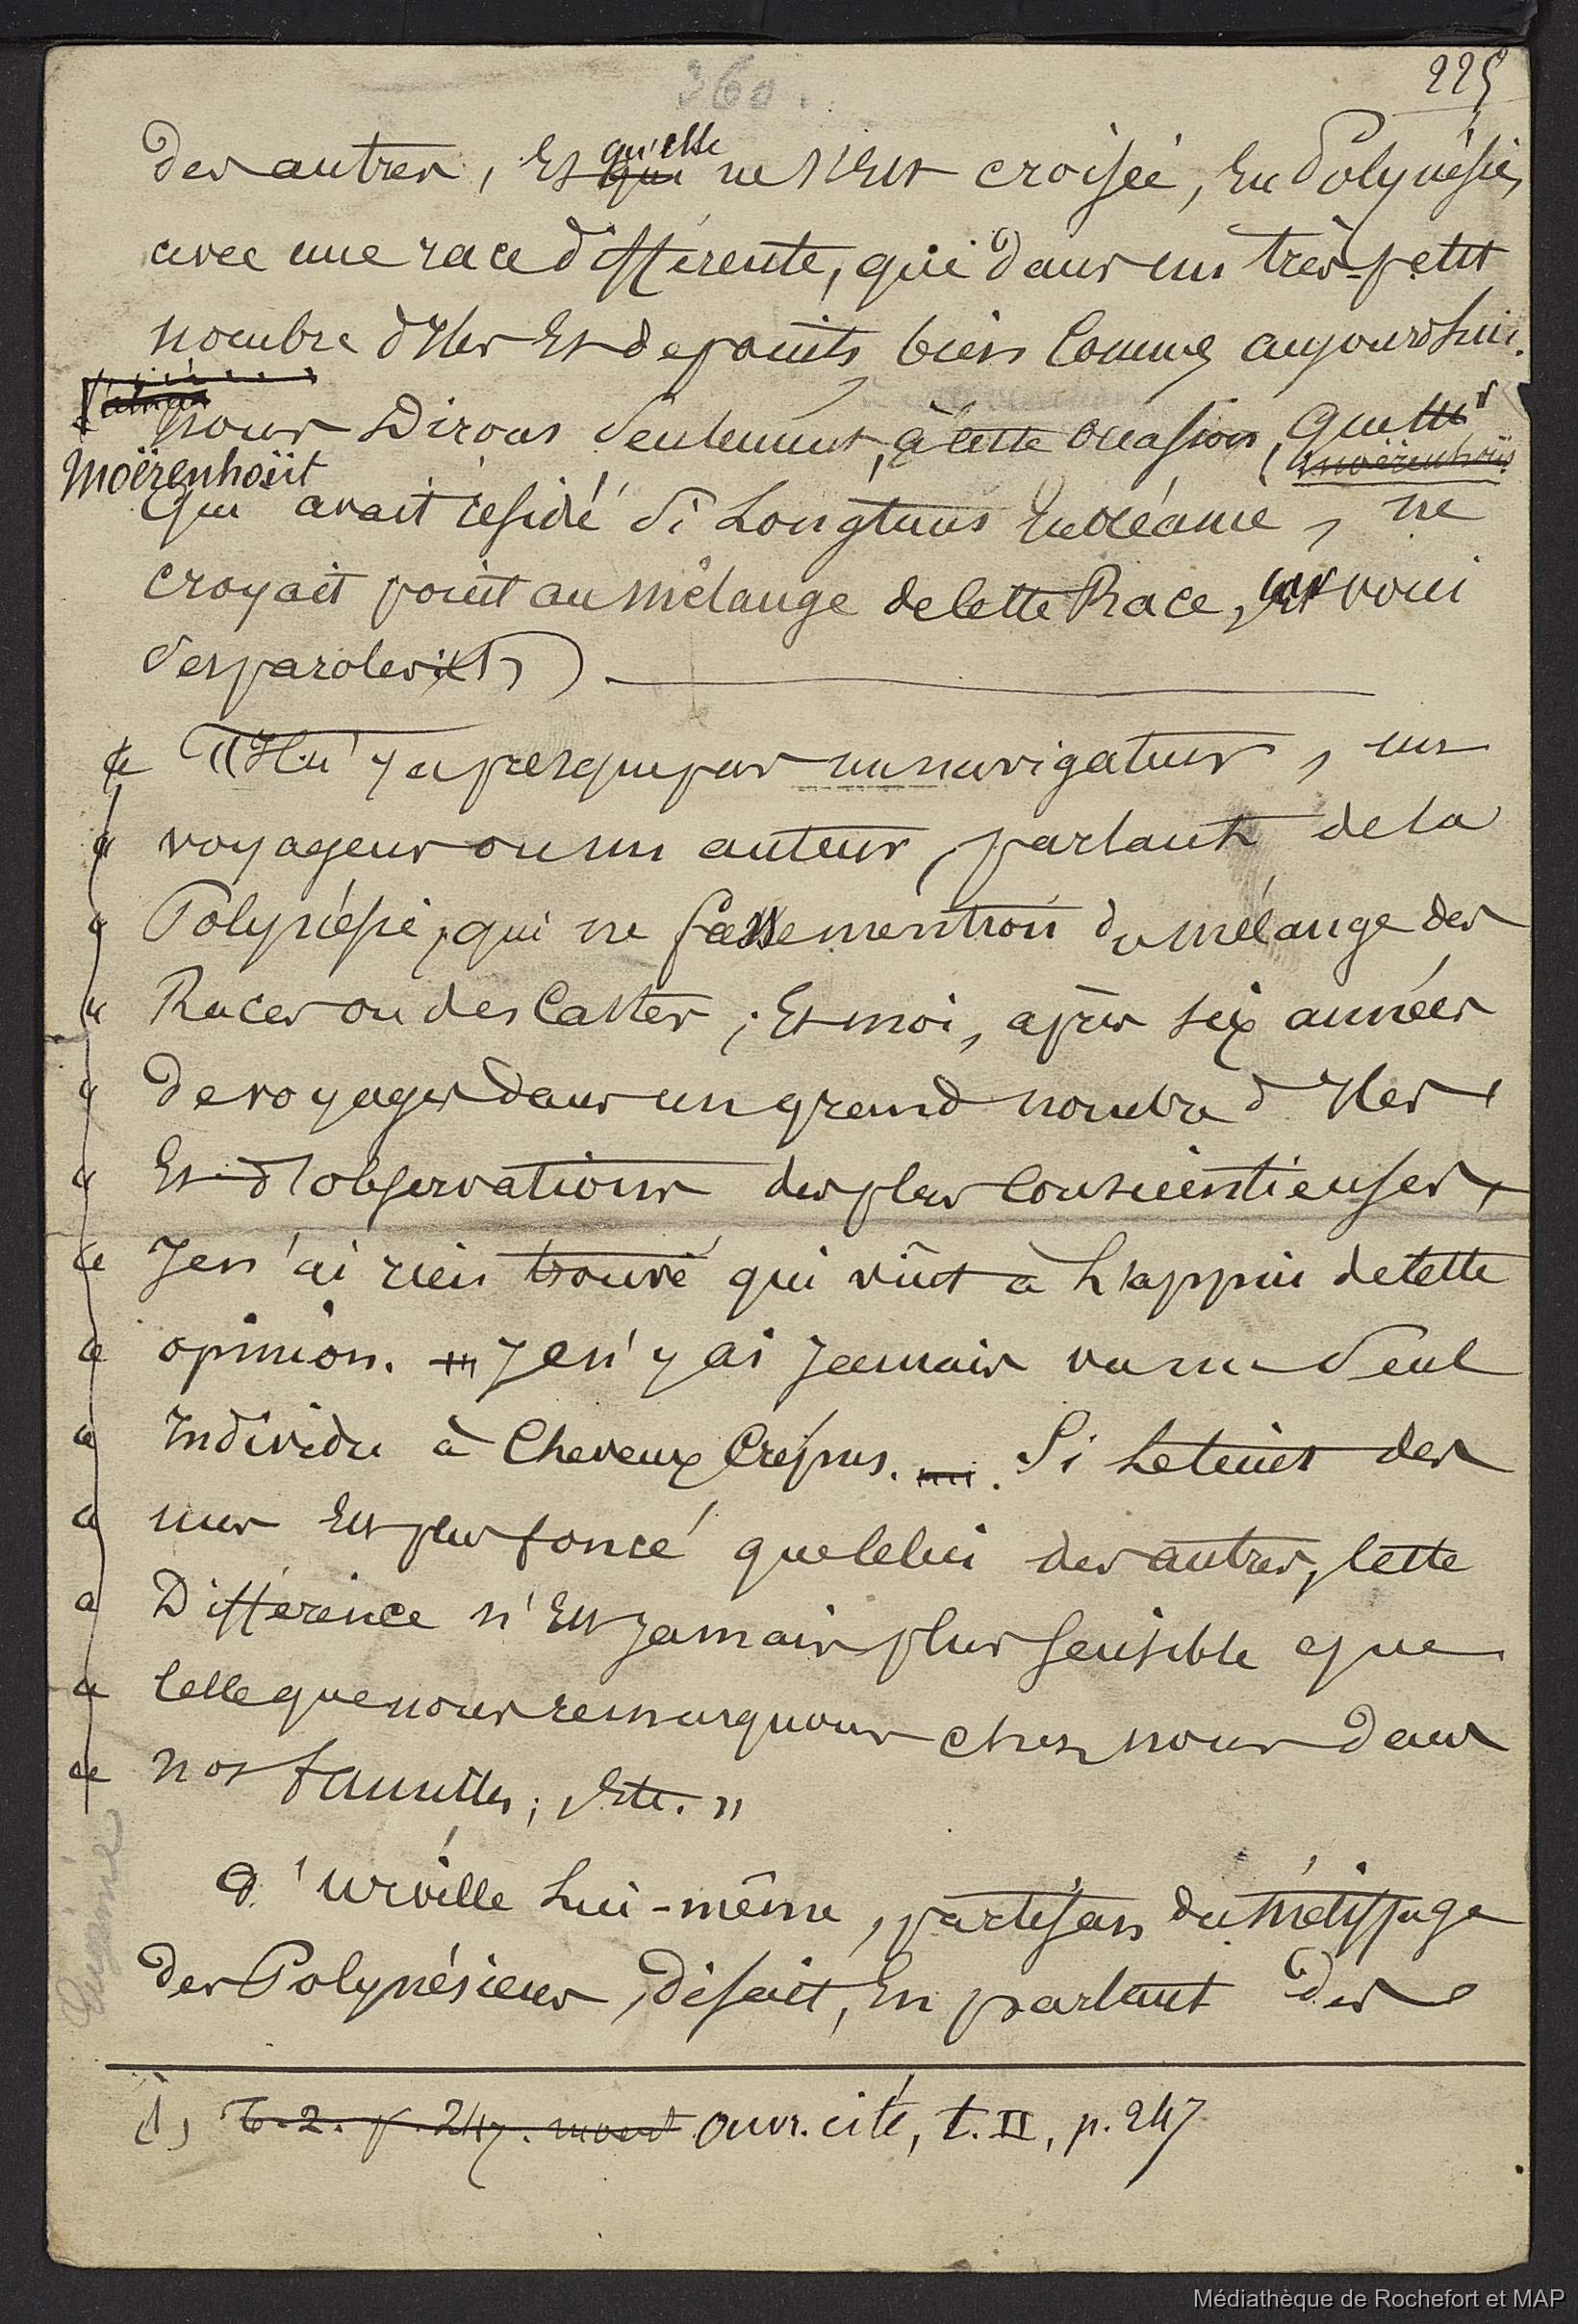 360.
225
des autres, et qu'elle ne s'est croisée, en Polynésie,
avec une race différente, que dans un très-petit
nombre d'Iles et de points, bien connus aujourd'hui.
nous Dirons seulement, à cette occasion, que Mr
Moërenhoüt
Moërenhoüt
qui avait résidé si Longtems en océanie, ne
croyait point au mélange de cette Race, voici
ses paroles (1)
« Il n'y a presque pas un navigateur, un
« voyageur ou un auteur, parlant de la
« Polynésie, qui ne fasse mention du mélange des
« Races ou des Castes ; Et moi, après six années
« de voyages dans un grand nombre d'Iles
« Et d'observations des plus Consciencieuses,
« Je n'ai rien trouvé qui vînt à L'appui de cette
« opinion. Je n'y ai Jamais vu un seul
« Individu à Cheveux Crépus. Si Le teint des
« uns Est plus foncé que celui des autres, cette
« Différence n'Est Jamais plus sensible que
« celle que nous remarquons chez nous dans
« nos familles ; Etc. »
d'urville Lui-même, partisan du Métissage
des Polynésiens, disait, En parlant des
(1) T. 2. p. 247. Ouvr. cité, t. II, p. 247
Médiathèque de Rochefort et MAP